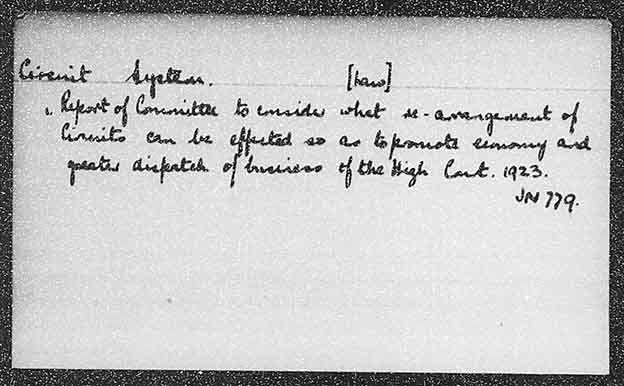 Circuit System. [Law]
1. Report of Committee to consider what re-arrangement of
Circuits can be effected so as to promote economy and
greater dispatch of business of the High Court. 1923.
JN 779.